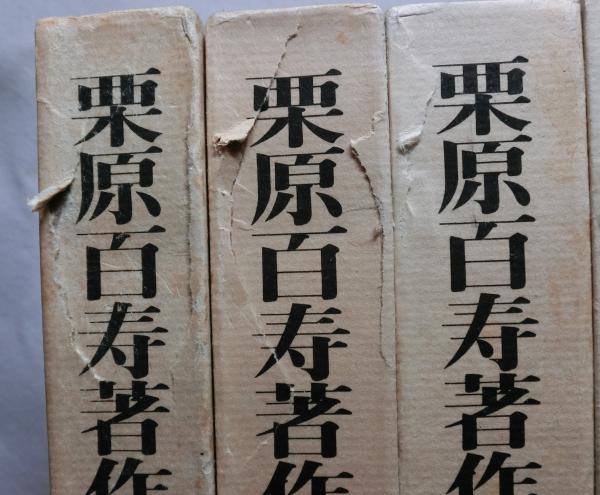 栗原百寿著作
栗原百寿著作
栗原百寿著作